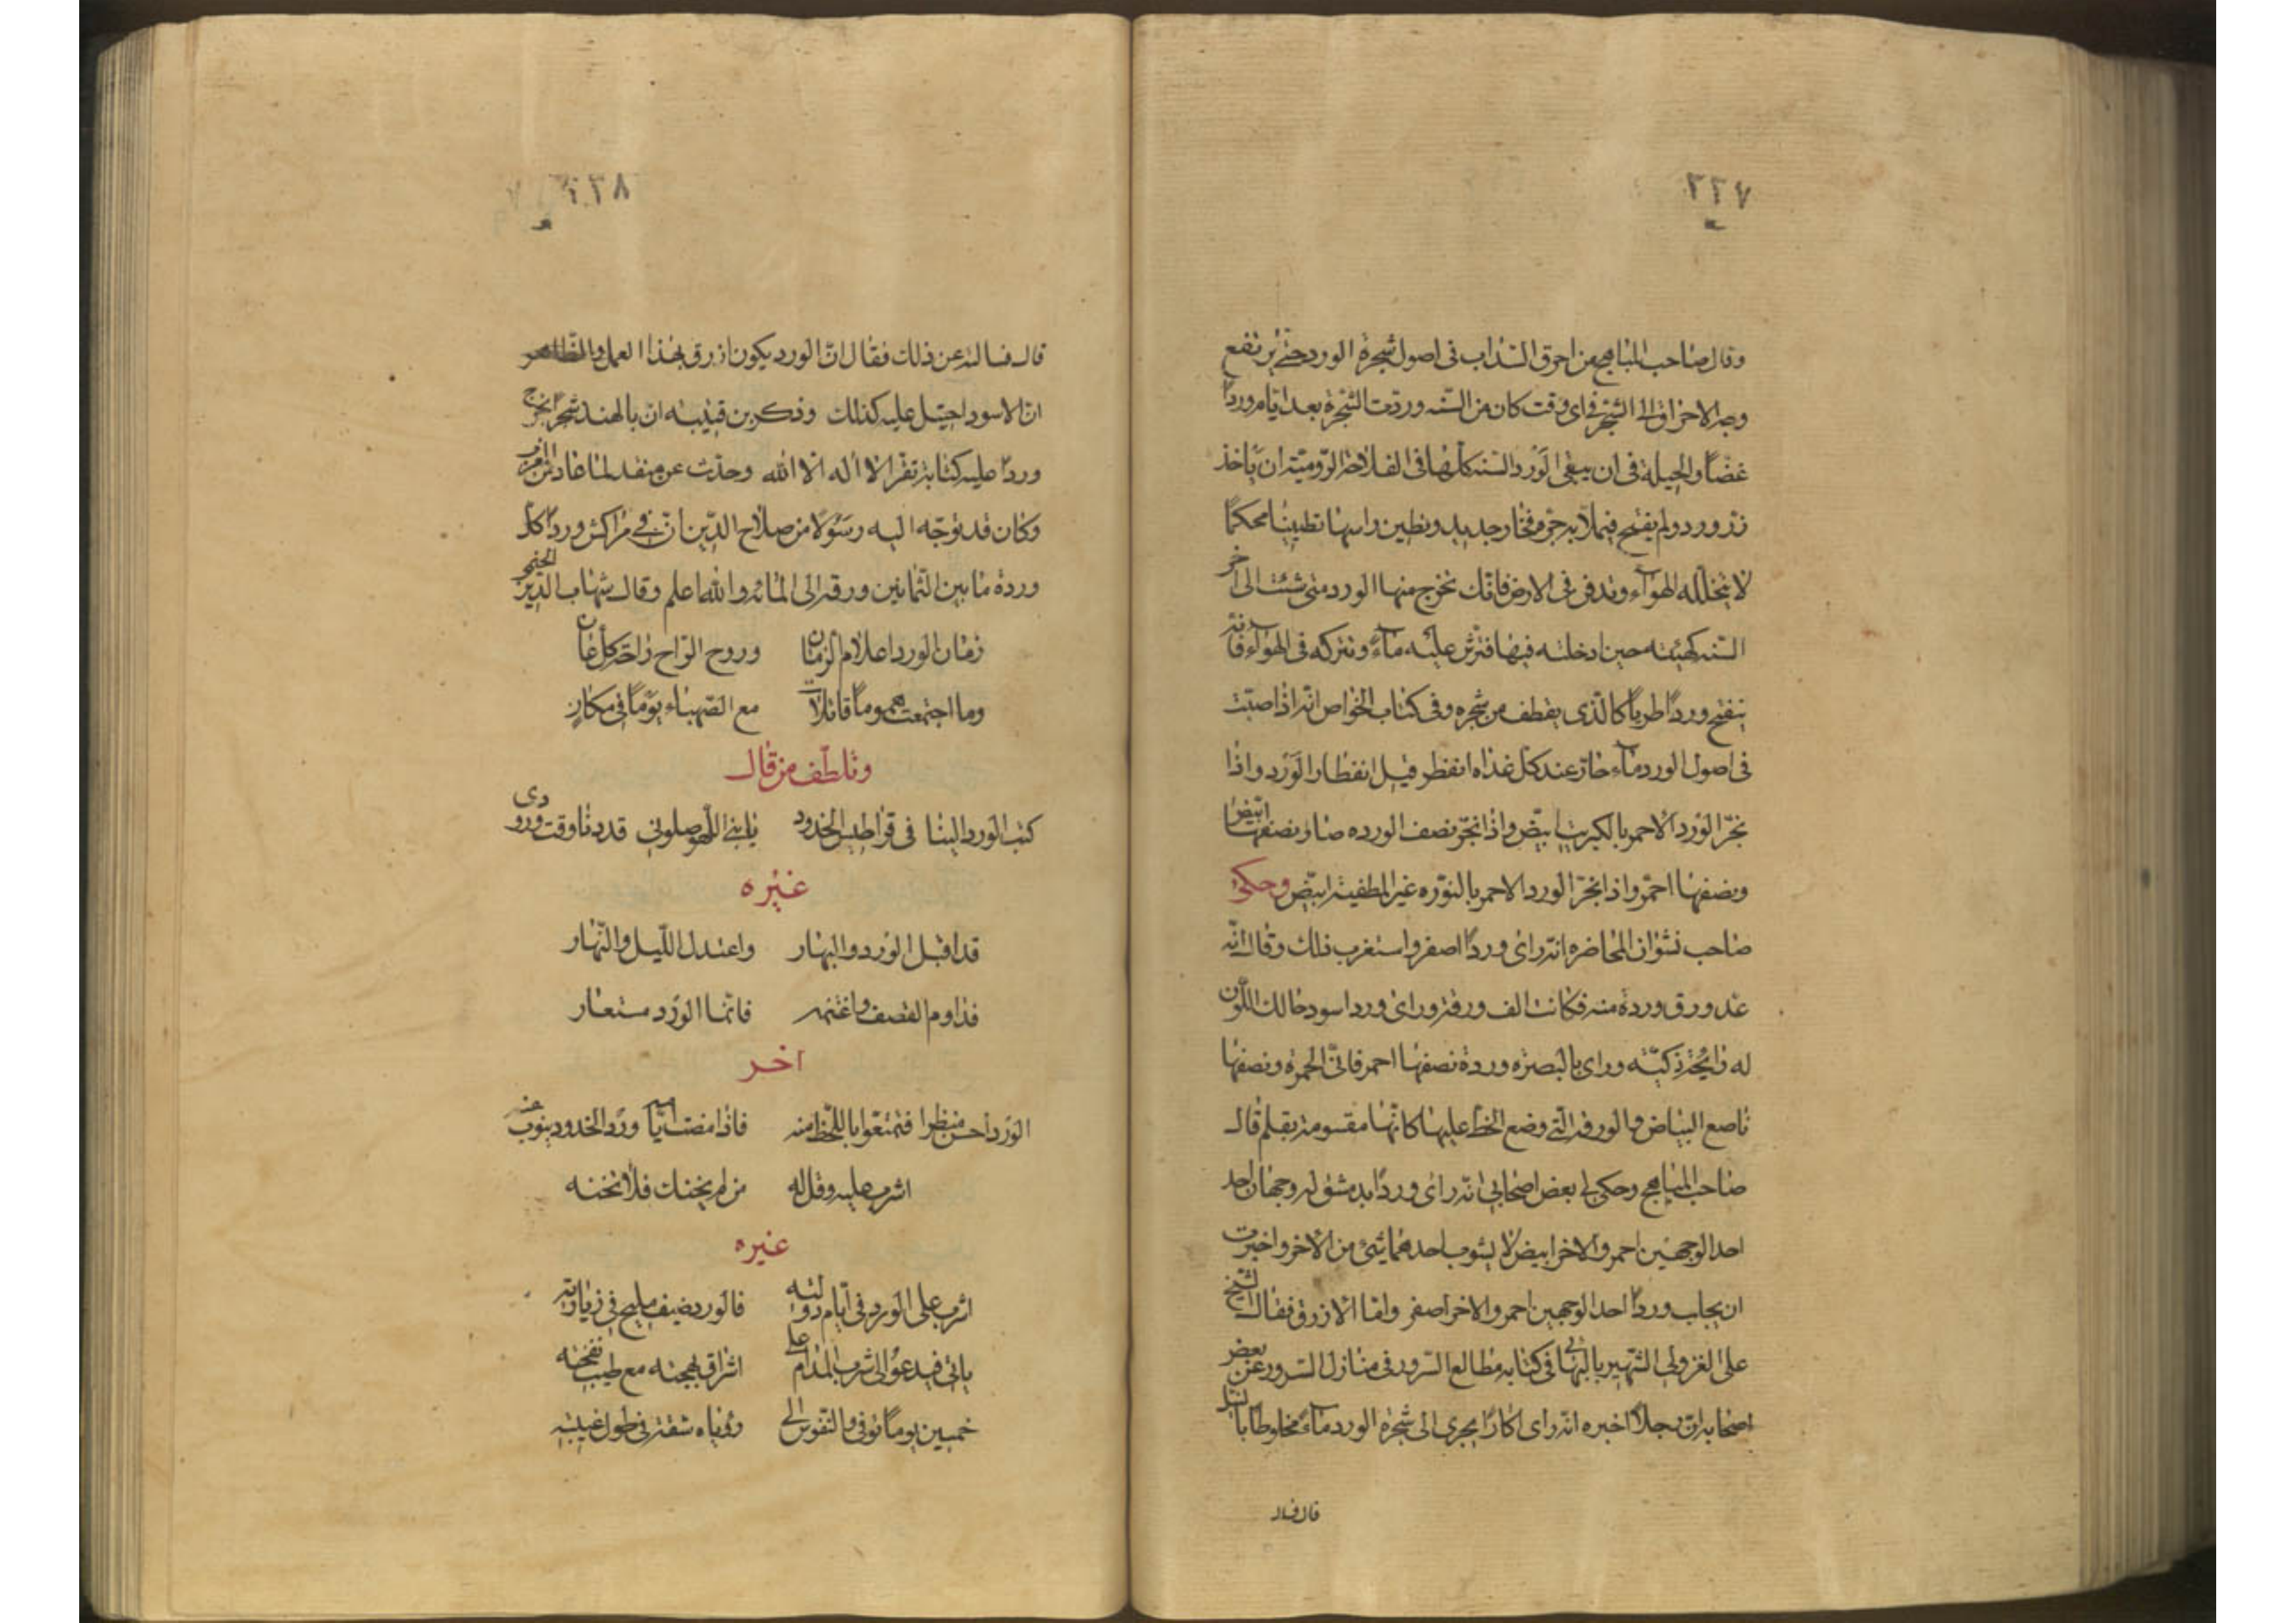 ٢٢٧
وقال صاحب المناهج من احرق السذاب فى اصول شجرة الورد حتى يرتفع
وهج الاحراق الى الشجر فى اى وقت كان من السنه وردت الشجرة بعد ايام وردًا
غضًا والحيلة فى ان يبقى الورد السنه كلها فى الفلاحة الروميّة ان ياخذ
زر ورد ولم يفتح فيملأ به جرّة فخار جديد ويطين راسها تطيينا محكمًا
لا يتخلله الهوآء وتدفن فى الارض فانك تخرج منها الورد متى شئت الى اخر
السنه كهيئته حين ادخلته فيها فترش عليه مآءً وتتركه فى الهوآء فانه
ينفتح وردًا طريًا كالذى يقطف من شجره وفى كتاب الخواص انه اذا صبّت
فى اصول الورد مآء حارّ عند كل غداه انفطر قبل انفطار الورد واذا
بخّر الورد الاحمر بالكبريت ابيضّ واذا بخّر نصف الورده صار نصفها ابيض
ونصفها احمر واذا بخّر الورد الاحمر بالنوره غير المطفية ابيضّ وحكى
صاحب نشوان المحاضره انه راى وردًا اصفر واستغرب ذلك وقال انه
عدّ ورق وردة منه فكانت الف ورقة وراى ورد اسود حالك اللون
له رايحة ذكيّه وراى بالبصره وردة نصفها احمر قانى الحمرة ونصفها
ناصع البياض والورقة التى وضع الخط عليها كانّها مقسومة بقلم قال
صاحب المناهج وحكى لى بعض اصحابى انه راى وردًا بدمشق له وجهان احد
احد الوجهين احمر والاخر ابيض لا يشوب احدهما شئ من الاخر واخبرت
ان بجلب وردًا احد الوجهين احمر والاخر اصفر وامّا الازرق فقال الشيخ
على الغزولى الشهير بالبهائى فى كتابه مطالع السرور فى منازل السرور عن بعض
اصحابه ان رجلًا اخبره انه راى اكارًا يجرى الى شجرة الورد مآء مخلوطا بالنيل
قال فسال
٢٣٨
قال فسالته عن ذلك فقال انّ الورد يكون ازرق بهذا العمل والظاهر
ان الاسود احتيل عليه كذلك وذكر بن قتيبه ان بالهند شجرًا يخرج
وردًا عليه كتابة تقرا لا اله الا الله وحدّث عن منقذ لما عاد من
وكان قد توجّه اليه رسولًا من صلاح الدين انّ فى مراكش وردًا كل
وردة ما بين الثمانين ورقة الى المائه والله اعلم وقال شهاب الدين
زمان الورد اعلام الزمان وروح الراح راحة كل عان
وما اجتمعت هموما قاتلات مع الصهباء يومًا فى مكان
وتلطف من قال
كتب الورد الينا فى قراطيس الخدود يا بنى اللهو صلونى قد دنا وقت ورودى
غيره
قد اقبل الورد والبهار واعتدل الليل والنهار
فداوم القصف واغتنمه فانما الورد مستعار
اخر
الورد احسن منظرا فتمتعوا باللحظ منه فاذا مضت ايامه ورد الخدود ينوب عنه
اشرب عليه وقل له من لم يخنك فلا تخنه
غيره
اشرب على الورد فى ايام دولته فالورد ضيف مليح فى زيارته
ياتى فيدعو الى شرب المدام على اشراق بهجته مع طيب نفحته
خمسين يومًا توفى والنفوس الى رؤياه شقتنى طول غيبته